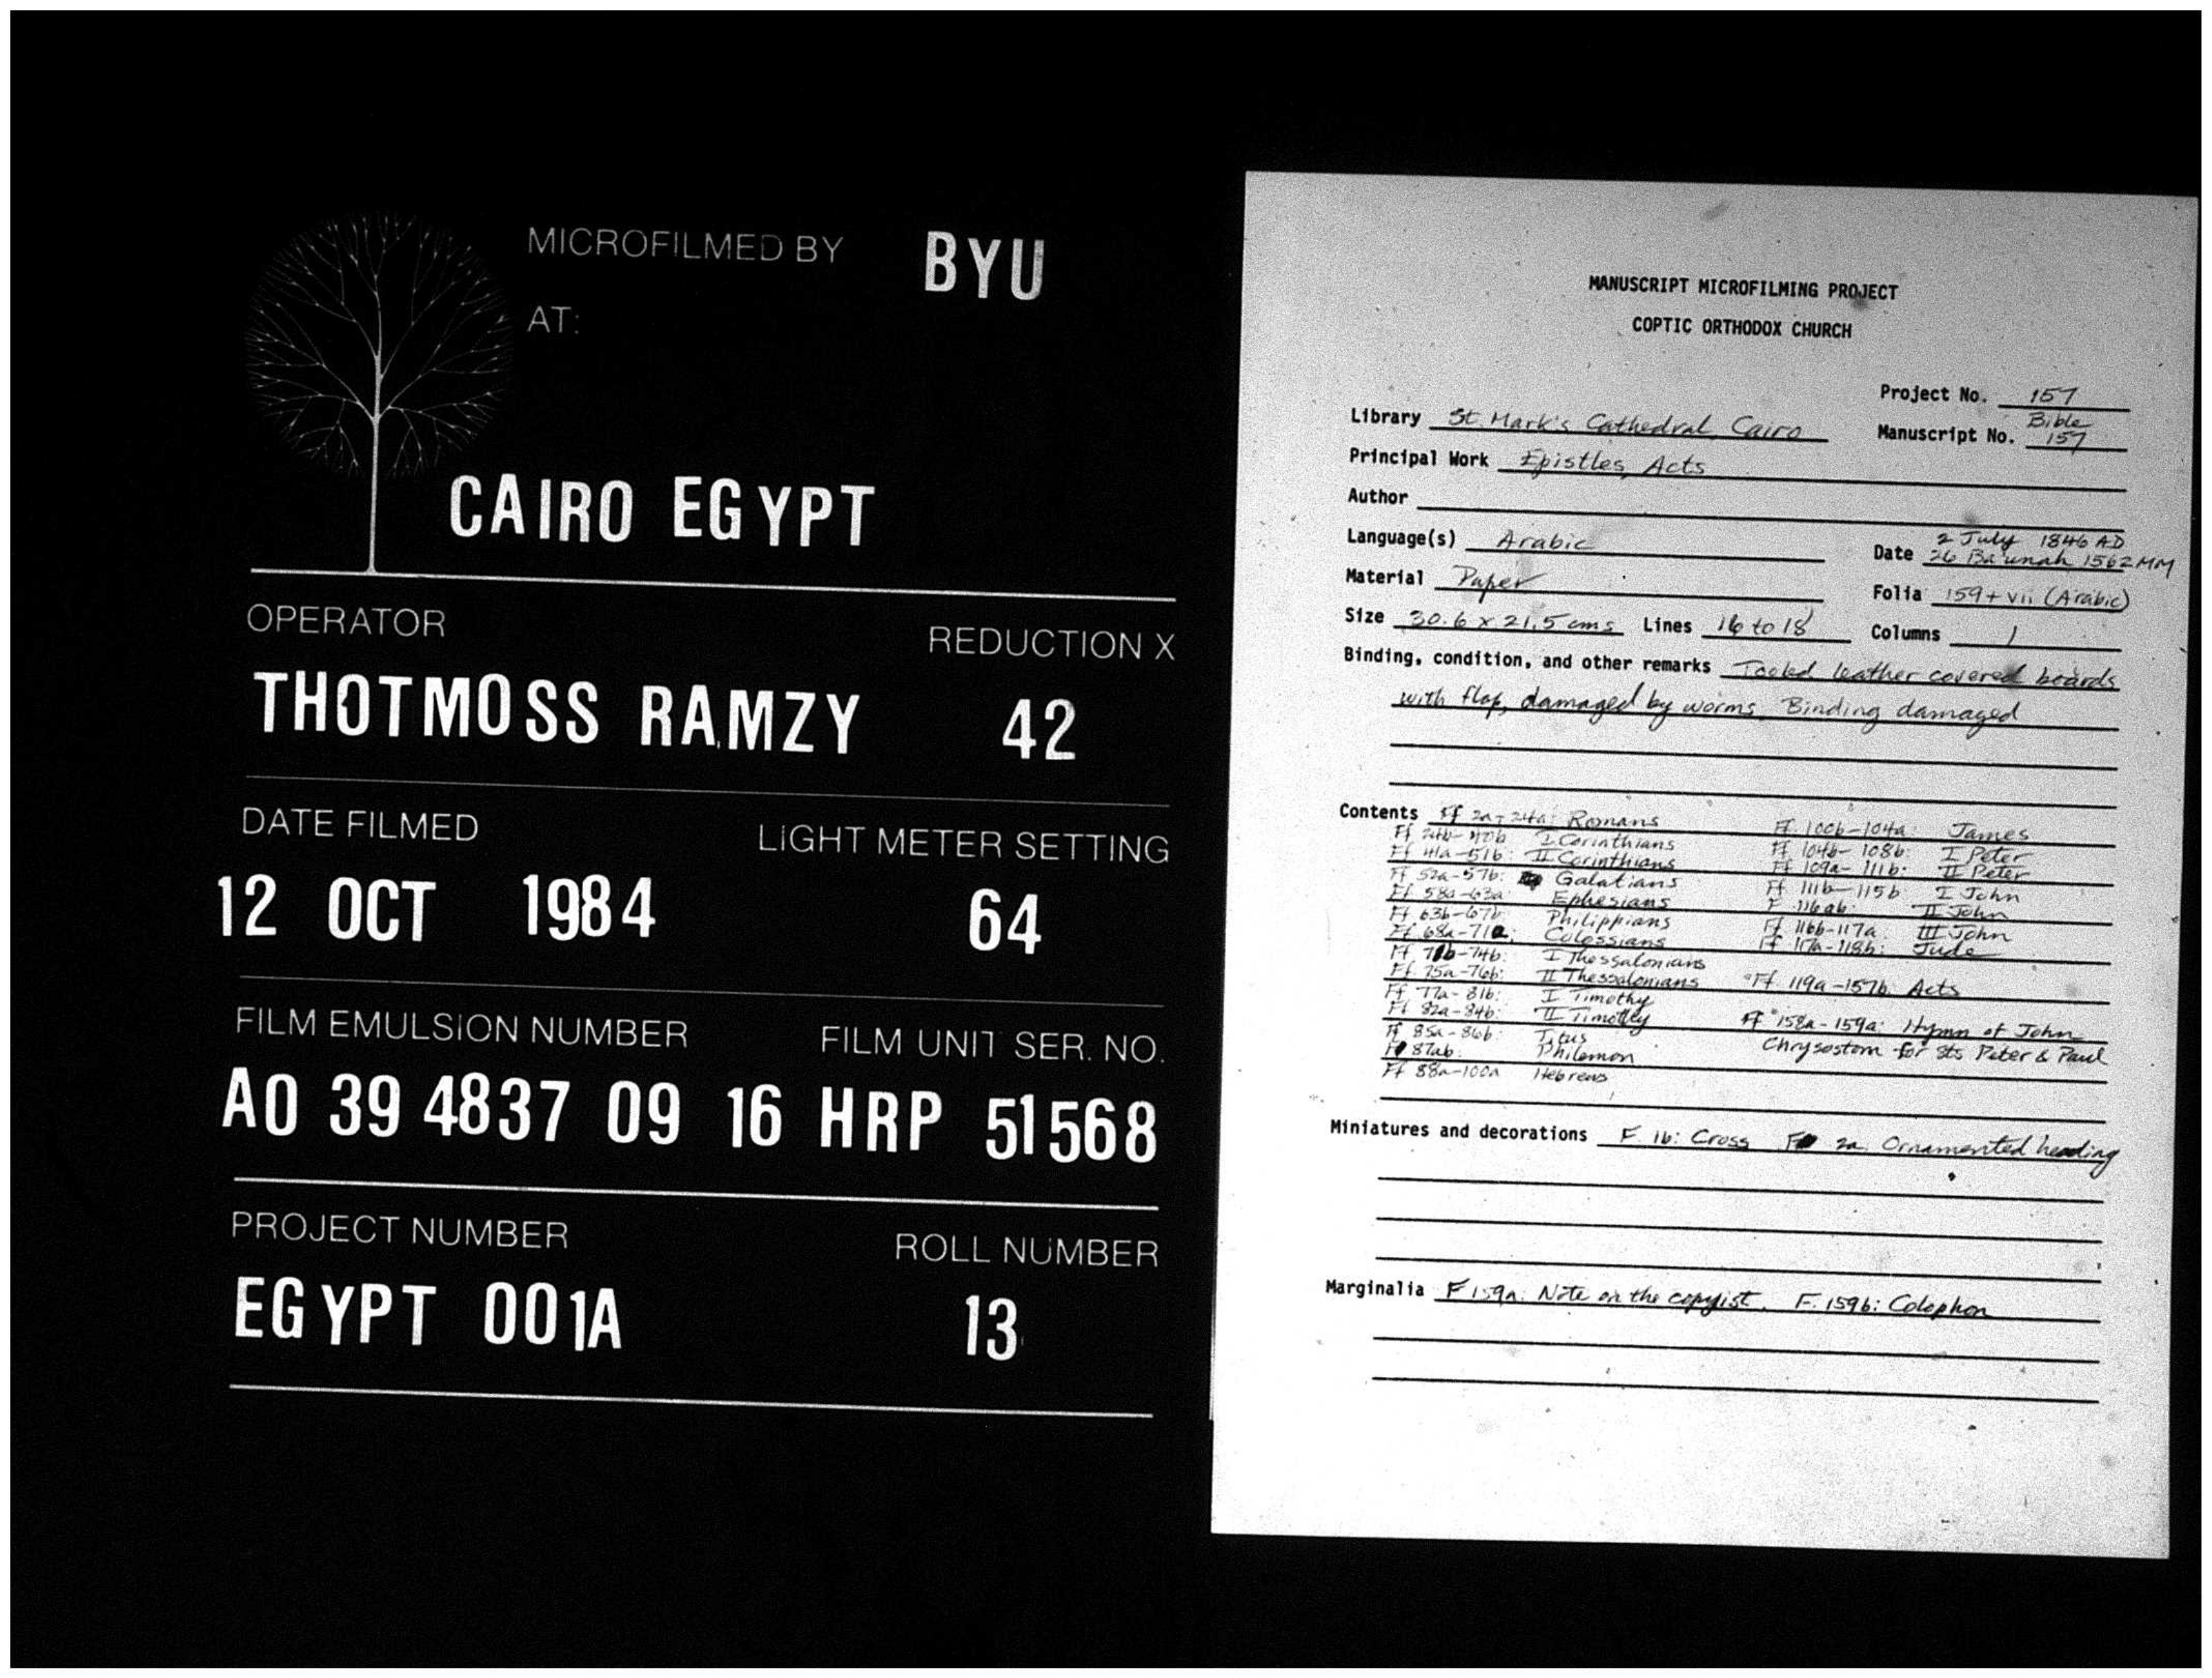 MICROFILMED BY BYU
AT:
CAIRO EGYPT
OPERATOR REDUCTION X
THOTMOSS RAMZY 42
DATE FILMED LIGHT METER SETTING
12 OCT 1984 64
FILM EMULSION NUMBER FILM UNIT SER. NO.
A0 39 4837 09 16 HRP 51568
PROJECT NUMBER ROLL NUMBER
EGYPT 001A 13
MANUSCRIPT MICROFILMING PROJECT
COPTIC ORTHODOX CHURCH
Project No. 157
Library St. Mark's Cathedral, Cairo Manuscript No. Bible 157
Principal Work Epistles, Acts
Author
Language(s) Arabic Date 2 July 1846 AD
26 Ba'unah 1562 MM
Material Paper Folia 159 + vii (Arabic)
Size 30.6 x 21.5 cms Lines 16 to 18 Columns 1
Binding, condition, and other remarks Tooled leather covered boards
with flap, damaged by worms. Binding damaged
Contents Ff 2a-24a: Romans
Ff 24b-40b I Corinthians
Ff 41a-51b: II Corinthians
Ff 52a-57b: Galatians
Ff 58a-63a: Ephesians
Ff 63b-67b: Philippians
Ff 68a-71a: Colossians
Ff 71b-74b: I Thessalonians
Ff. 75a-76b: II Thessalonians
Ff 77a-81b: I Timothy
Ff 82a-84b: II Timothy
Ff 85a-86b: Titus
F 87ab: Philemon
Ff 88a-100a Hebrews
Ff. 100b-104a: James
Ff 104b-108b: I Peter
Ff 109a-111b: II Peter
Ff 111b-115b I John
F 116ab: II John
Ff 116b-117a: III John
Ff 117a-118b: Jude
Ff. 119a-157b Acts
Ff 158a-159a: Hymn of John
Chrysostom for Sts Peter & Paul
Miniatures and decorations F. 1b: Cross F 2a: Ornamented heading
Marginalia F 159a: Note on the copyist. F. 159b: Colophon